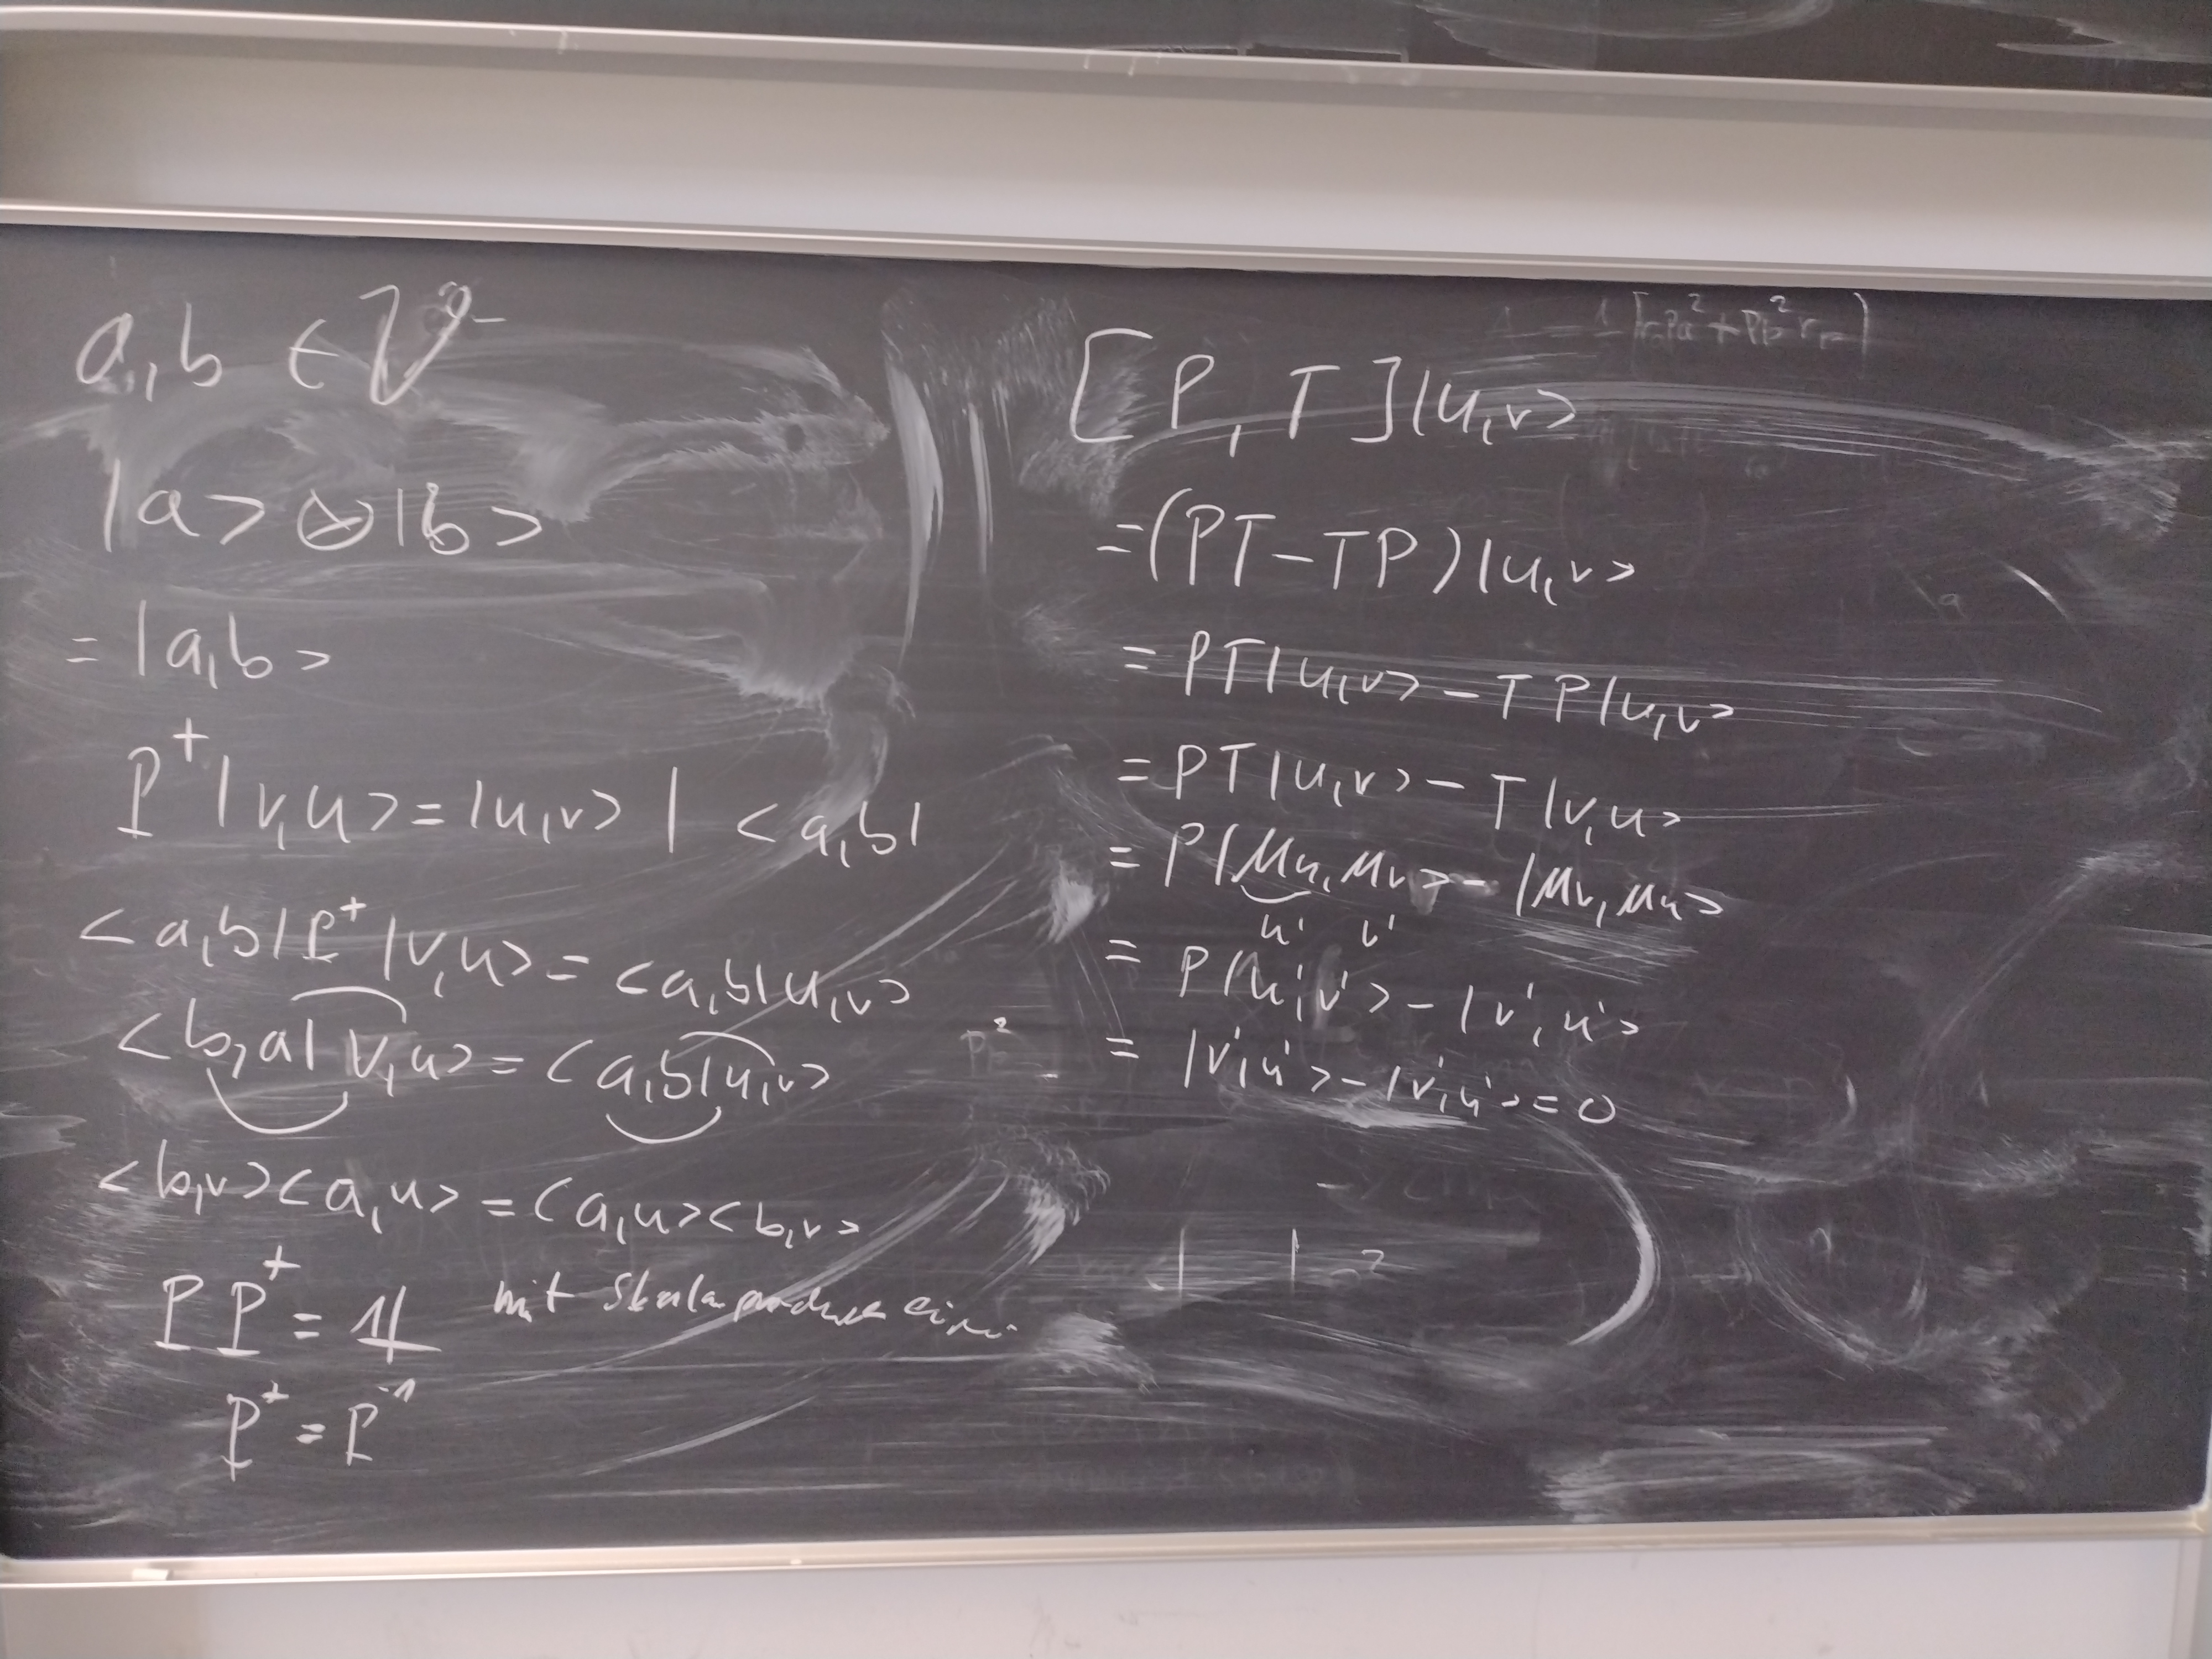 a, b ∈ V
|a> ⊗ |b>
= |a,b>
P⁺|v,u> = |u,v> | <a,b|
<a,b|P⁺|v,u> = <a,b|u,v>
<b,a|v,u> = <a,b|u,v>
<b,v><a,u> = <a,u><b,v>
PP⁺ = 1 mit
P⁺ = P⁻¹
[P, T]|u,v>
=(PT-TP)|u,v>
= PT|u,v> - TP|u,v>
= PT|u,v> - T|v,u>
= P|Mu, Mv> - |Mv, Mu>
u' v'
= P|u',v'> - |v',u'>
= |v',u'> - |v',u'> = 0